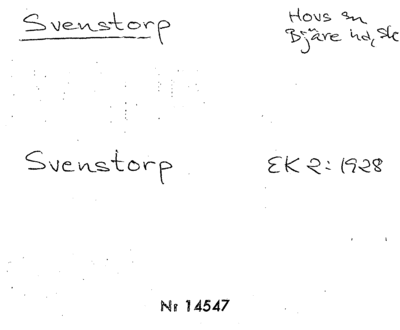 Svenstorp
Hovs sn
Bjäre hd, Sk
Svenstorp
EK 2: 1928
Nr 14547